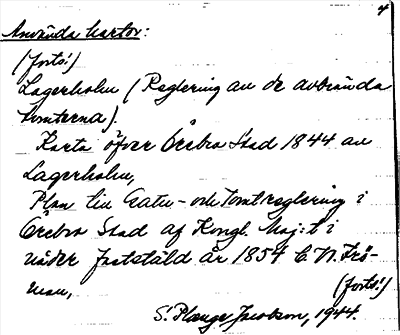 4
Använda kartor:
(forts!)
Lagerholm (Reglering av de avbrända
tomterna).
Karta öfver Örebro Stad 1844 av
Lagerholm,
Plan till Gatu- och Tomtreglering i
Örebro Stad af Kongl. Maj:t i
nåder faststäld år 1854 C.N. Frö-
man,
(forts!)
S. Plange Jacobson, 1944.